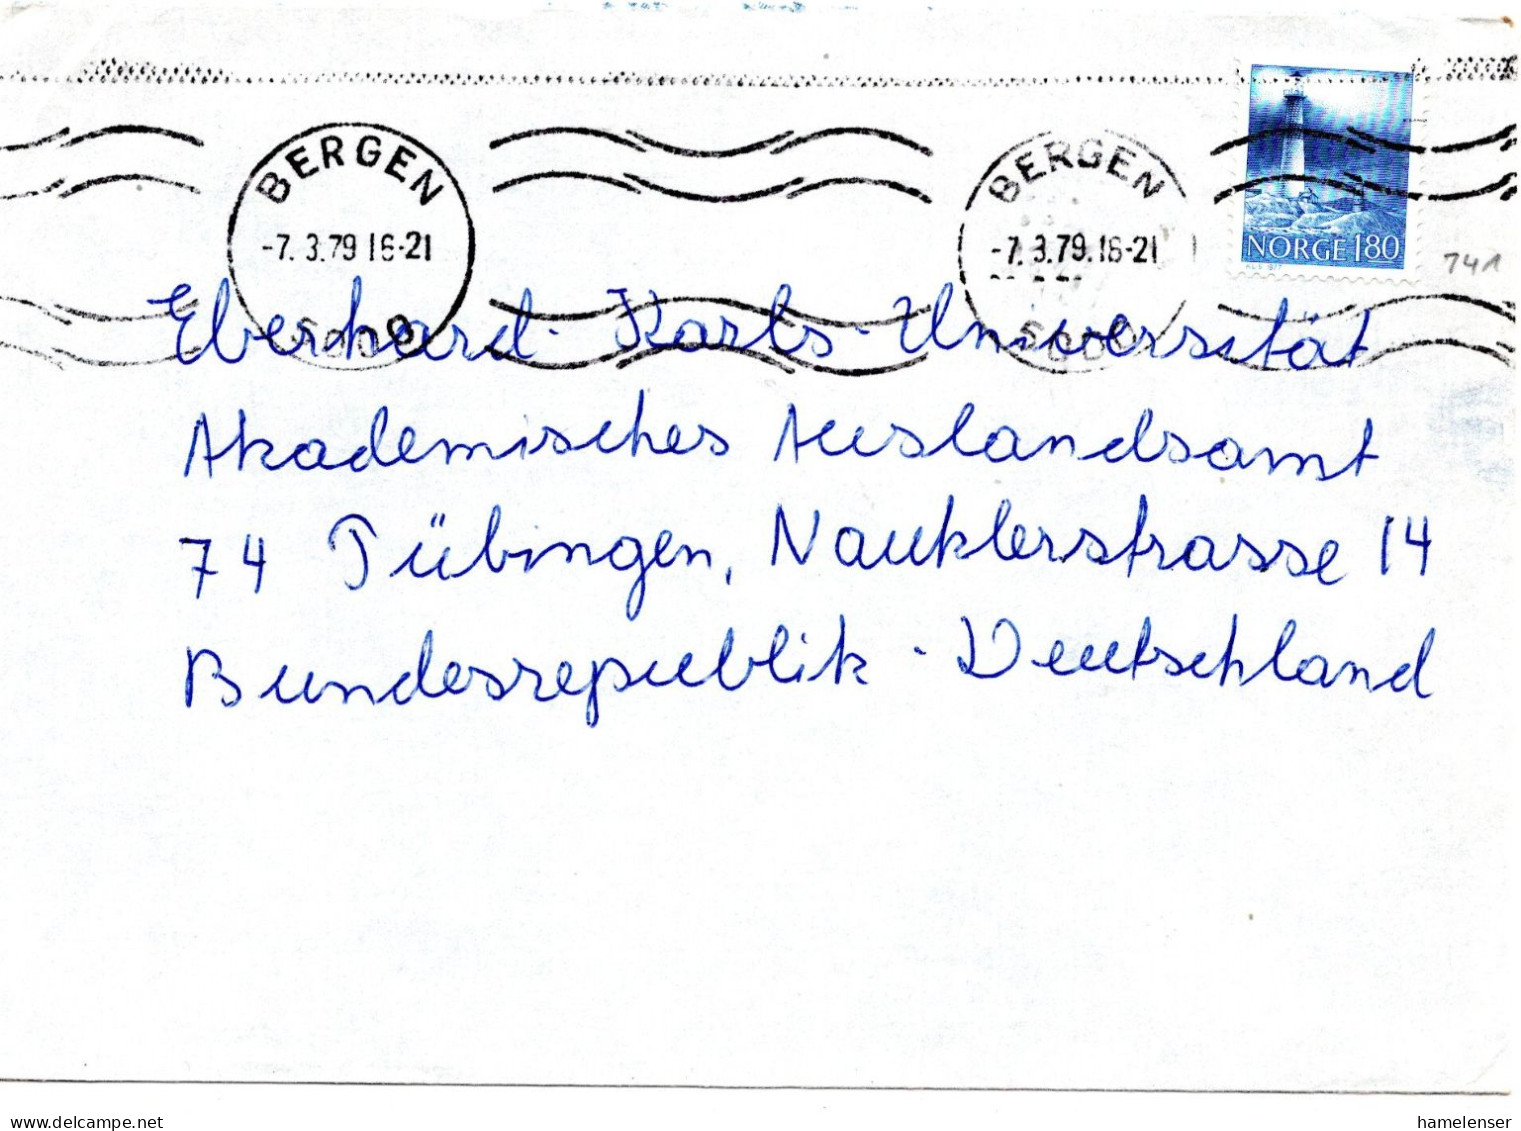 BERGEN
-7.3.79 18-21
5000
BERGEN
-7.3.79.18-21
5000
NORGE 180
741
Eberhard-Karls-Universität
Akademisches Auslandsamt
74 Tübingen, Nauklerstrasse 14
Bundesrepublik-Deutschland
delcampe.net
hamelenser